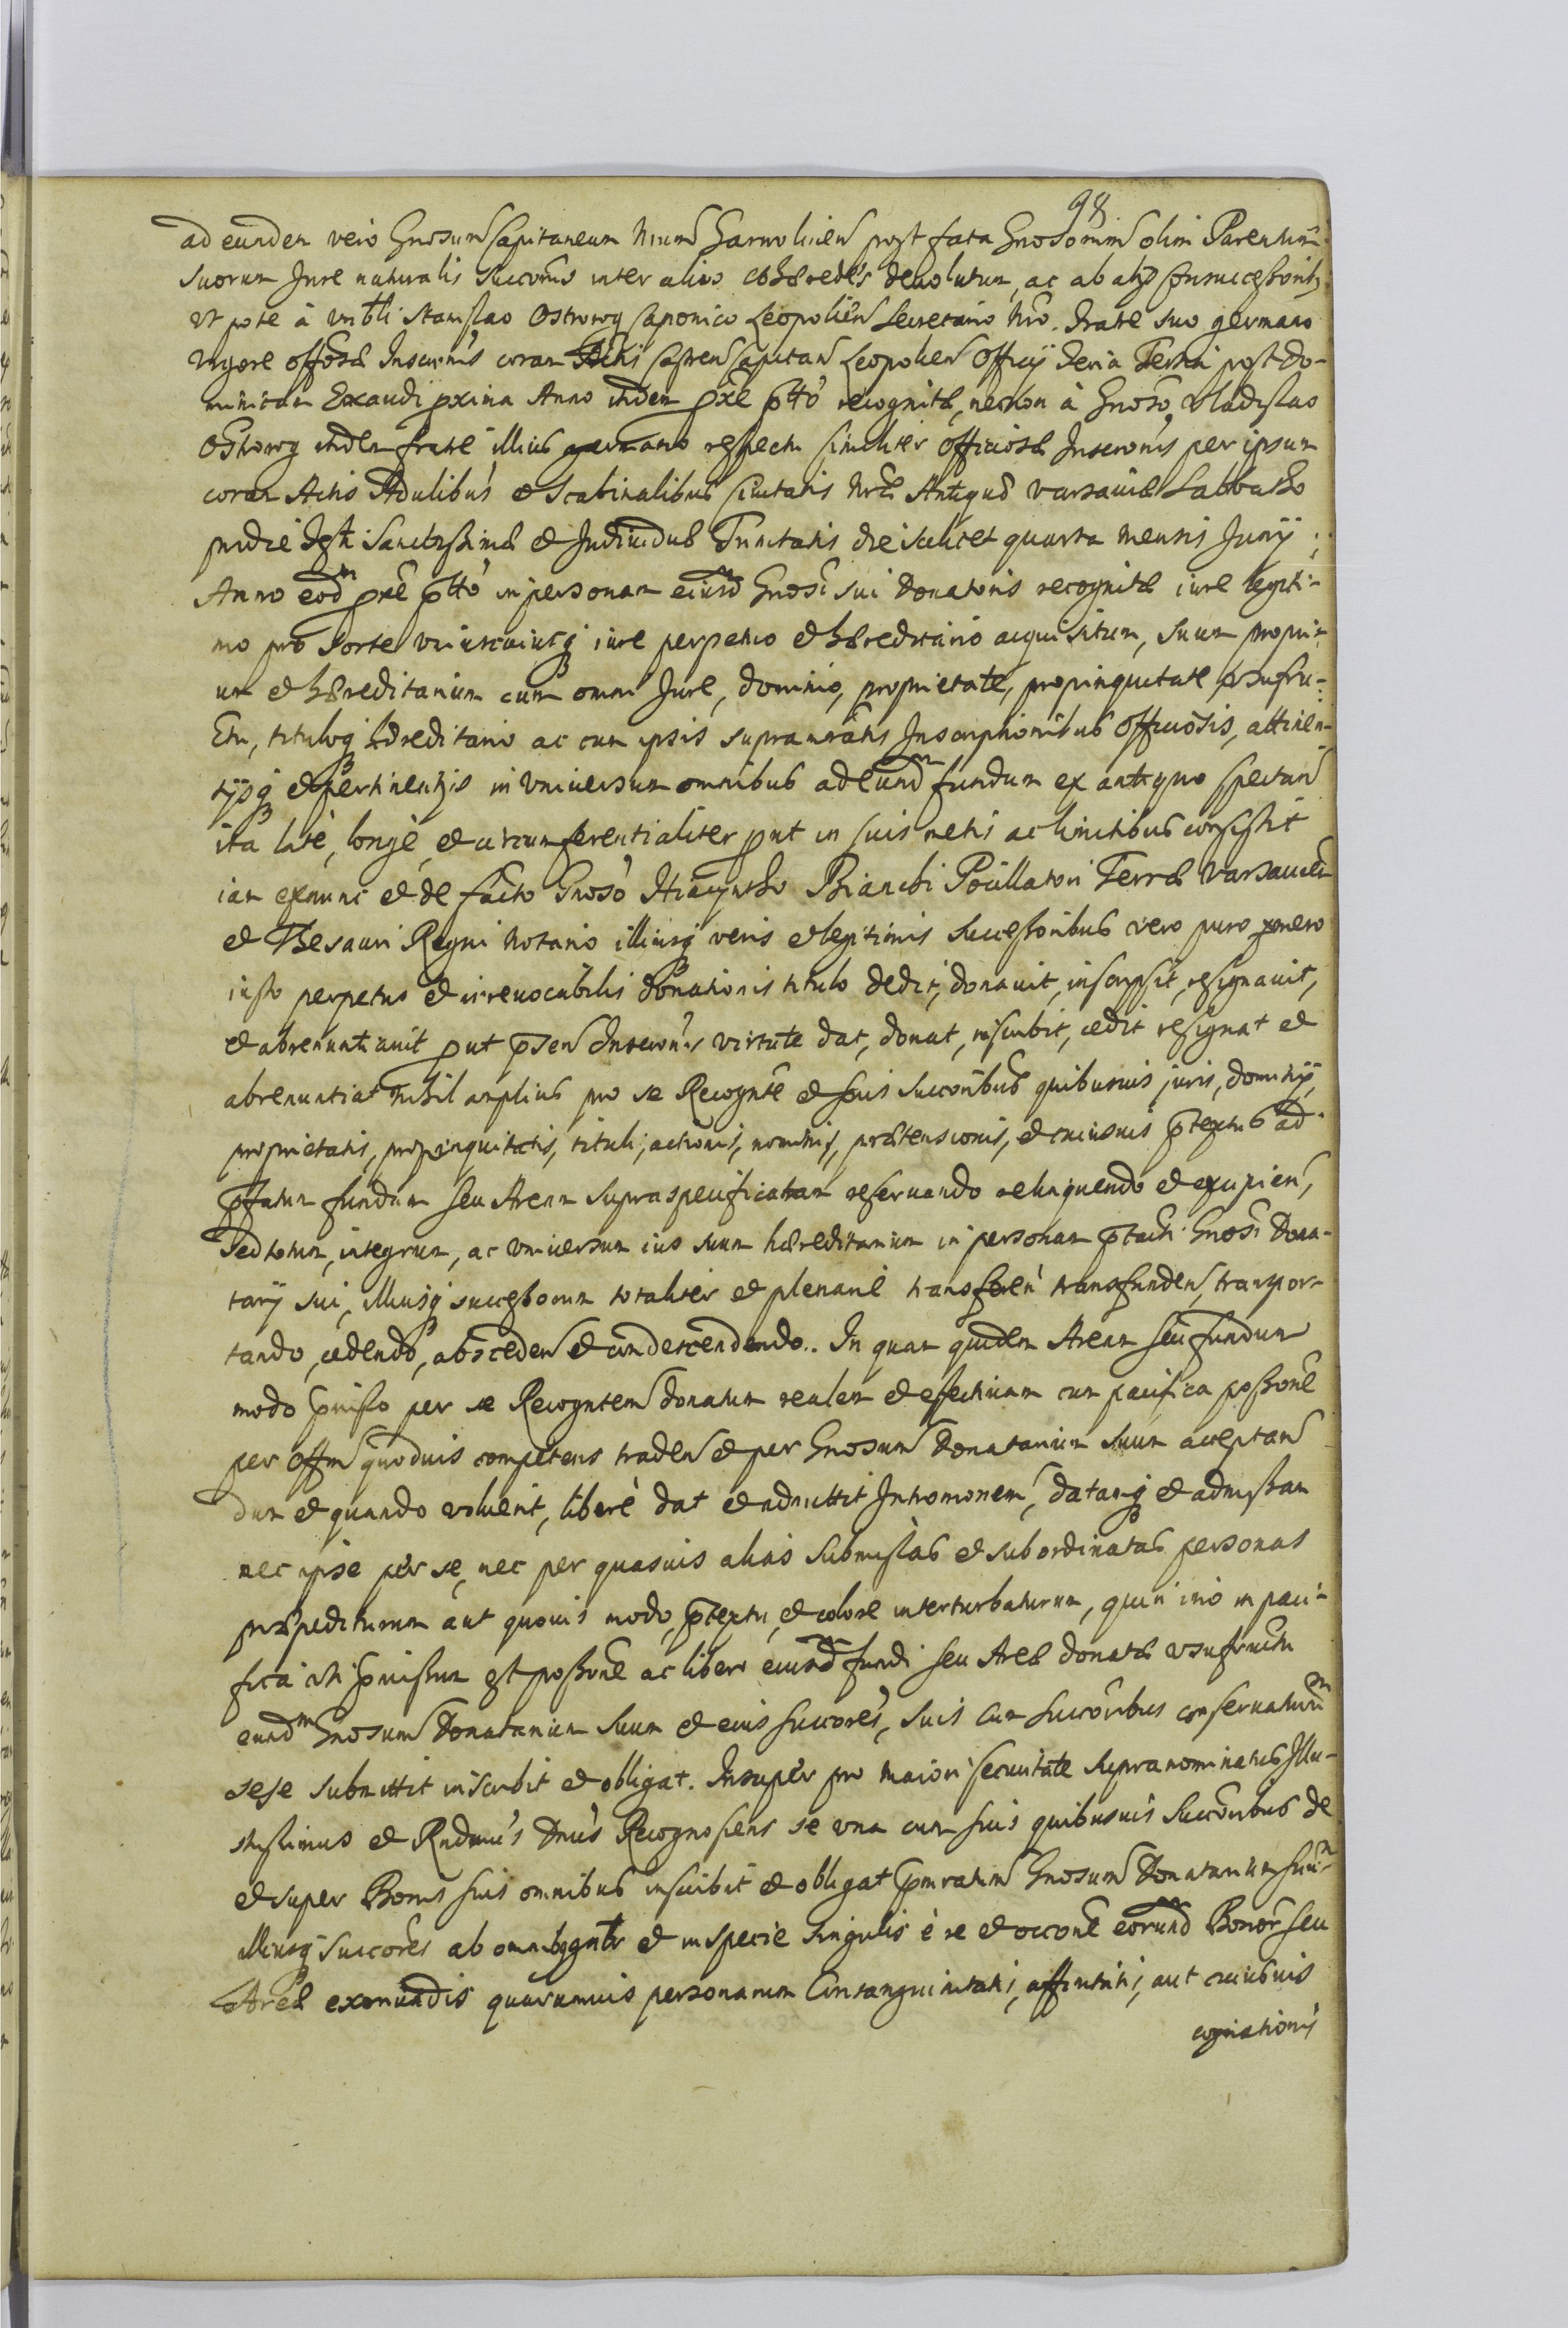 98
ad eunden vero Gnosum Capitaneum nrum Garwolinen post fata Gnosorum olim Parentum
suorum Jure naturalis succonis inter alios cohæredes devolutum, ac ab alijs consuccessoribq
vt pote à vnbli Stanislao Ostrorog Caponico Leopolien Secretario nro. fratre suo germano
vigore offosæ Inscronis coram Actis Castren Capitan Leopolien Officij feria Tertia post do-
minicam Exaudi pxima Anno eodem pñte ptto recognitæ, necnon à Gnoso Vladislao
Ostrorog itidem fratre illius germano respectu similiter officiosæ Inscronis per ipsum
coram Actis Ædulibus et Scabinalibus Ciuitatis nræ Antiquæ Varsauiæ Sabbatho
pridie festi Sanctissimæ et Indiuiduæ Trinitatis die scilicet quarta mensis Junij
Anno eodm pñte ptto in personam eiusdm Gnosi sui Donatoris recognitæ iure legiti-
mo pro sorte vniuscuiusq iure perpetuo et hæreditario acquisitum, suum propri-
um et hæreditarium cum omni Jure, dominio, proprietate, propinquitate vsufru-
ctu, tituloq hæreditario ac cum ipsis supranratis Inscriptionibus officiosis, attinen-
tijsq et pertinentijs in vniuersum omnibus ad eundm fundum ex antiquo spectan
ita latè, longè, et circumferentialiter put in suis metis ac limitibus consistit
iam exnunc et de facto Gnoso Hiacyntho Bianchi Pocillatori Terræ Varsauien
et Thesauri Regni Notario illiusq veris et legitimis successoribus vero puro mero
iusto perpetuo et irreuocabilis donationis titulo dedit, donauit, inscripsit, resignauit,
et abrenuntiauit put psen Inscronis virtute dat, donat, inscribit, cedit resignat et
abrenuntiat nihil amplius pro se Recognte et suis succoribus quibusuis juris, dominij,
proprietatis, propinquitatis, tituli, actionis, nominis, prætensionis, et cuiusuis ptextus ad
pfatum fundum seu Aream supraspecificatam reseruando relinquendo et excipien,
sed totum, integrum, ac vniuersum ius suum hæreditarium in personam ptacti Gnosi Dona-
tarij sui, illiusq successorum totaliter et plenariè transferen transfunden, transpor-
tando, cedendo, absceden et condescendendo. In quam quidem Aream seu fundum
modo pmisso per se Recogntem donatum realem et effectiuam cum pacifica possone
per offm quoduis competens traden et per Gnosum Donatarium suum acceptan
dum et quando voluerit, liberè dat et admittit Intromonem, datamq et admissam
nec ipse per se, nec per quasuis alias submissas et subordinatas personas
præpediturum aut quouis modo, ptextu, et colore interturbaturum, quin imo in paci-
fica vti pmissum est possone ac libero eiusdm fundi seu Areæ donatæ vsufructu
eundm Gnosum Donatarium suum et eius succores, suis cum succoribus conseruaturum
sese submittit inscribit et obligat. Insuper pro maiori securitate supranominatus Illu-
strissimus et Rndmus Dnus Recognoscens se vna cum suis quibusuis succoribus de
et super Bonis suis omnibus inscribit et obligat pmratum Gnosum Donatarium suum
illiusq succores ab omnibq gntr et in specie singulis è re et occone eorundm Bonor seu
Areæ exnundis quarumuis personarum Consanguinitatis, affinitatis, aut cuiusuis
cognationis